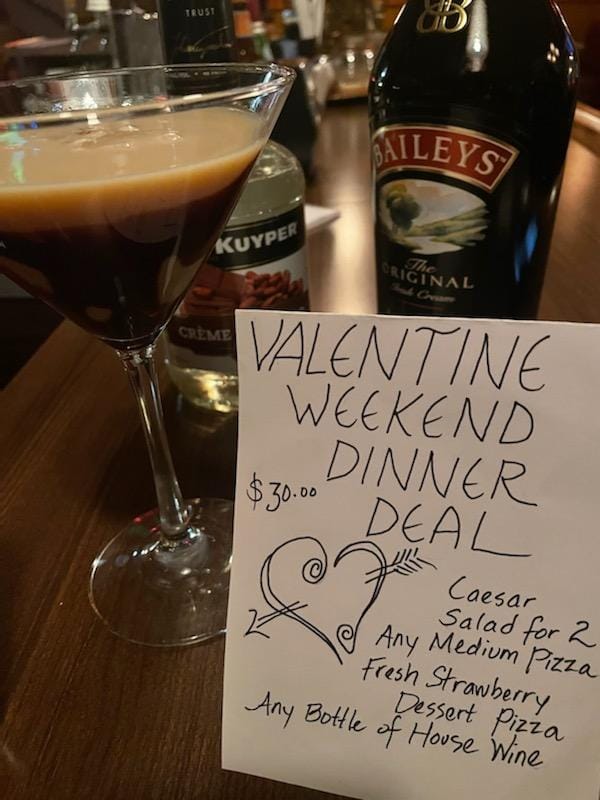 TRUST
KUYPER
CRÈME
BAILEYS
The
ORIGINAL
Irish Cream
VALENTINE
WEEKEND
DINNER
$30.00
DEAL
Caesar
Salad for 2
Any Medium Pizza
Fresh Strawberry
Dessert Pizza
Any Bottle of House Wine